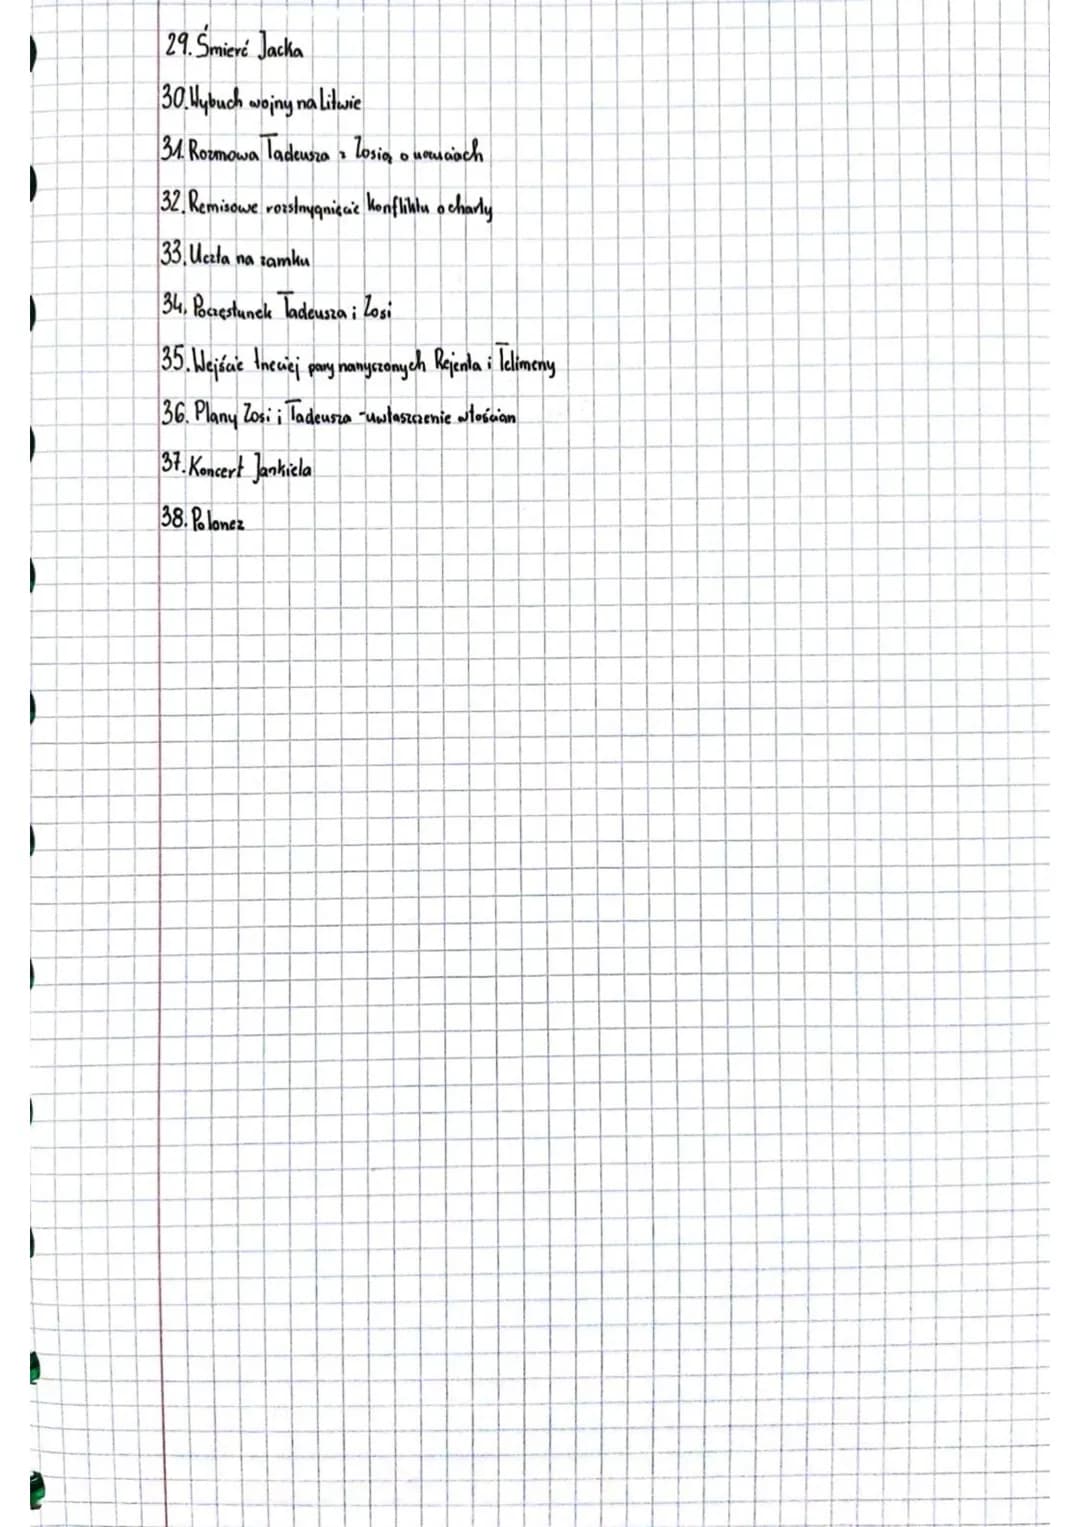 29. Śmierć Jacka
30. Wybuch wojny na Litwie
31. Rozmowa Tadeusza z Zosią o uczuciach
32. Remisowe rozstrzygnięcie konfliktu o charty
33. Uczta na zamku
34. Poczęstunek Tadeusza i Zosi
35. Wejście trzeciej pary narzyczonych Rejenta i Telimeny
36. Plany Zosi i Tadeusza - uwłaszczenie włościan
37. Koncert Jankiela
38. Polonez